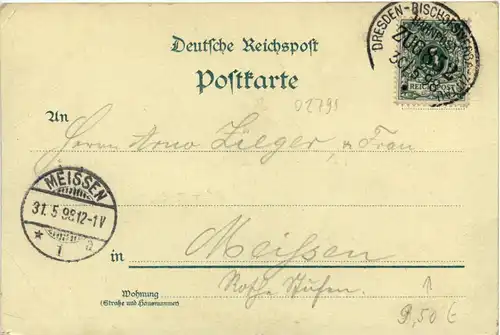 DRESDEN-BISCHOFSWERDA
ZUG
REICHSPOST
Deutsche Reichspost
Postkarte
02791
An
Herrn Arno Zieger, & Frau
MEISSEN
31. 5 98 12-1V
* 1 a
in Meißen
Rothe Stufen.
Wohnung
(Straße und Hausnummer)
9,50 €